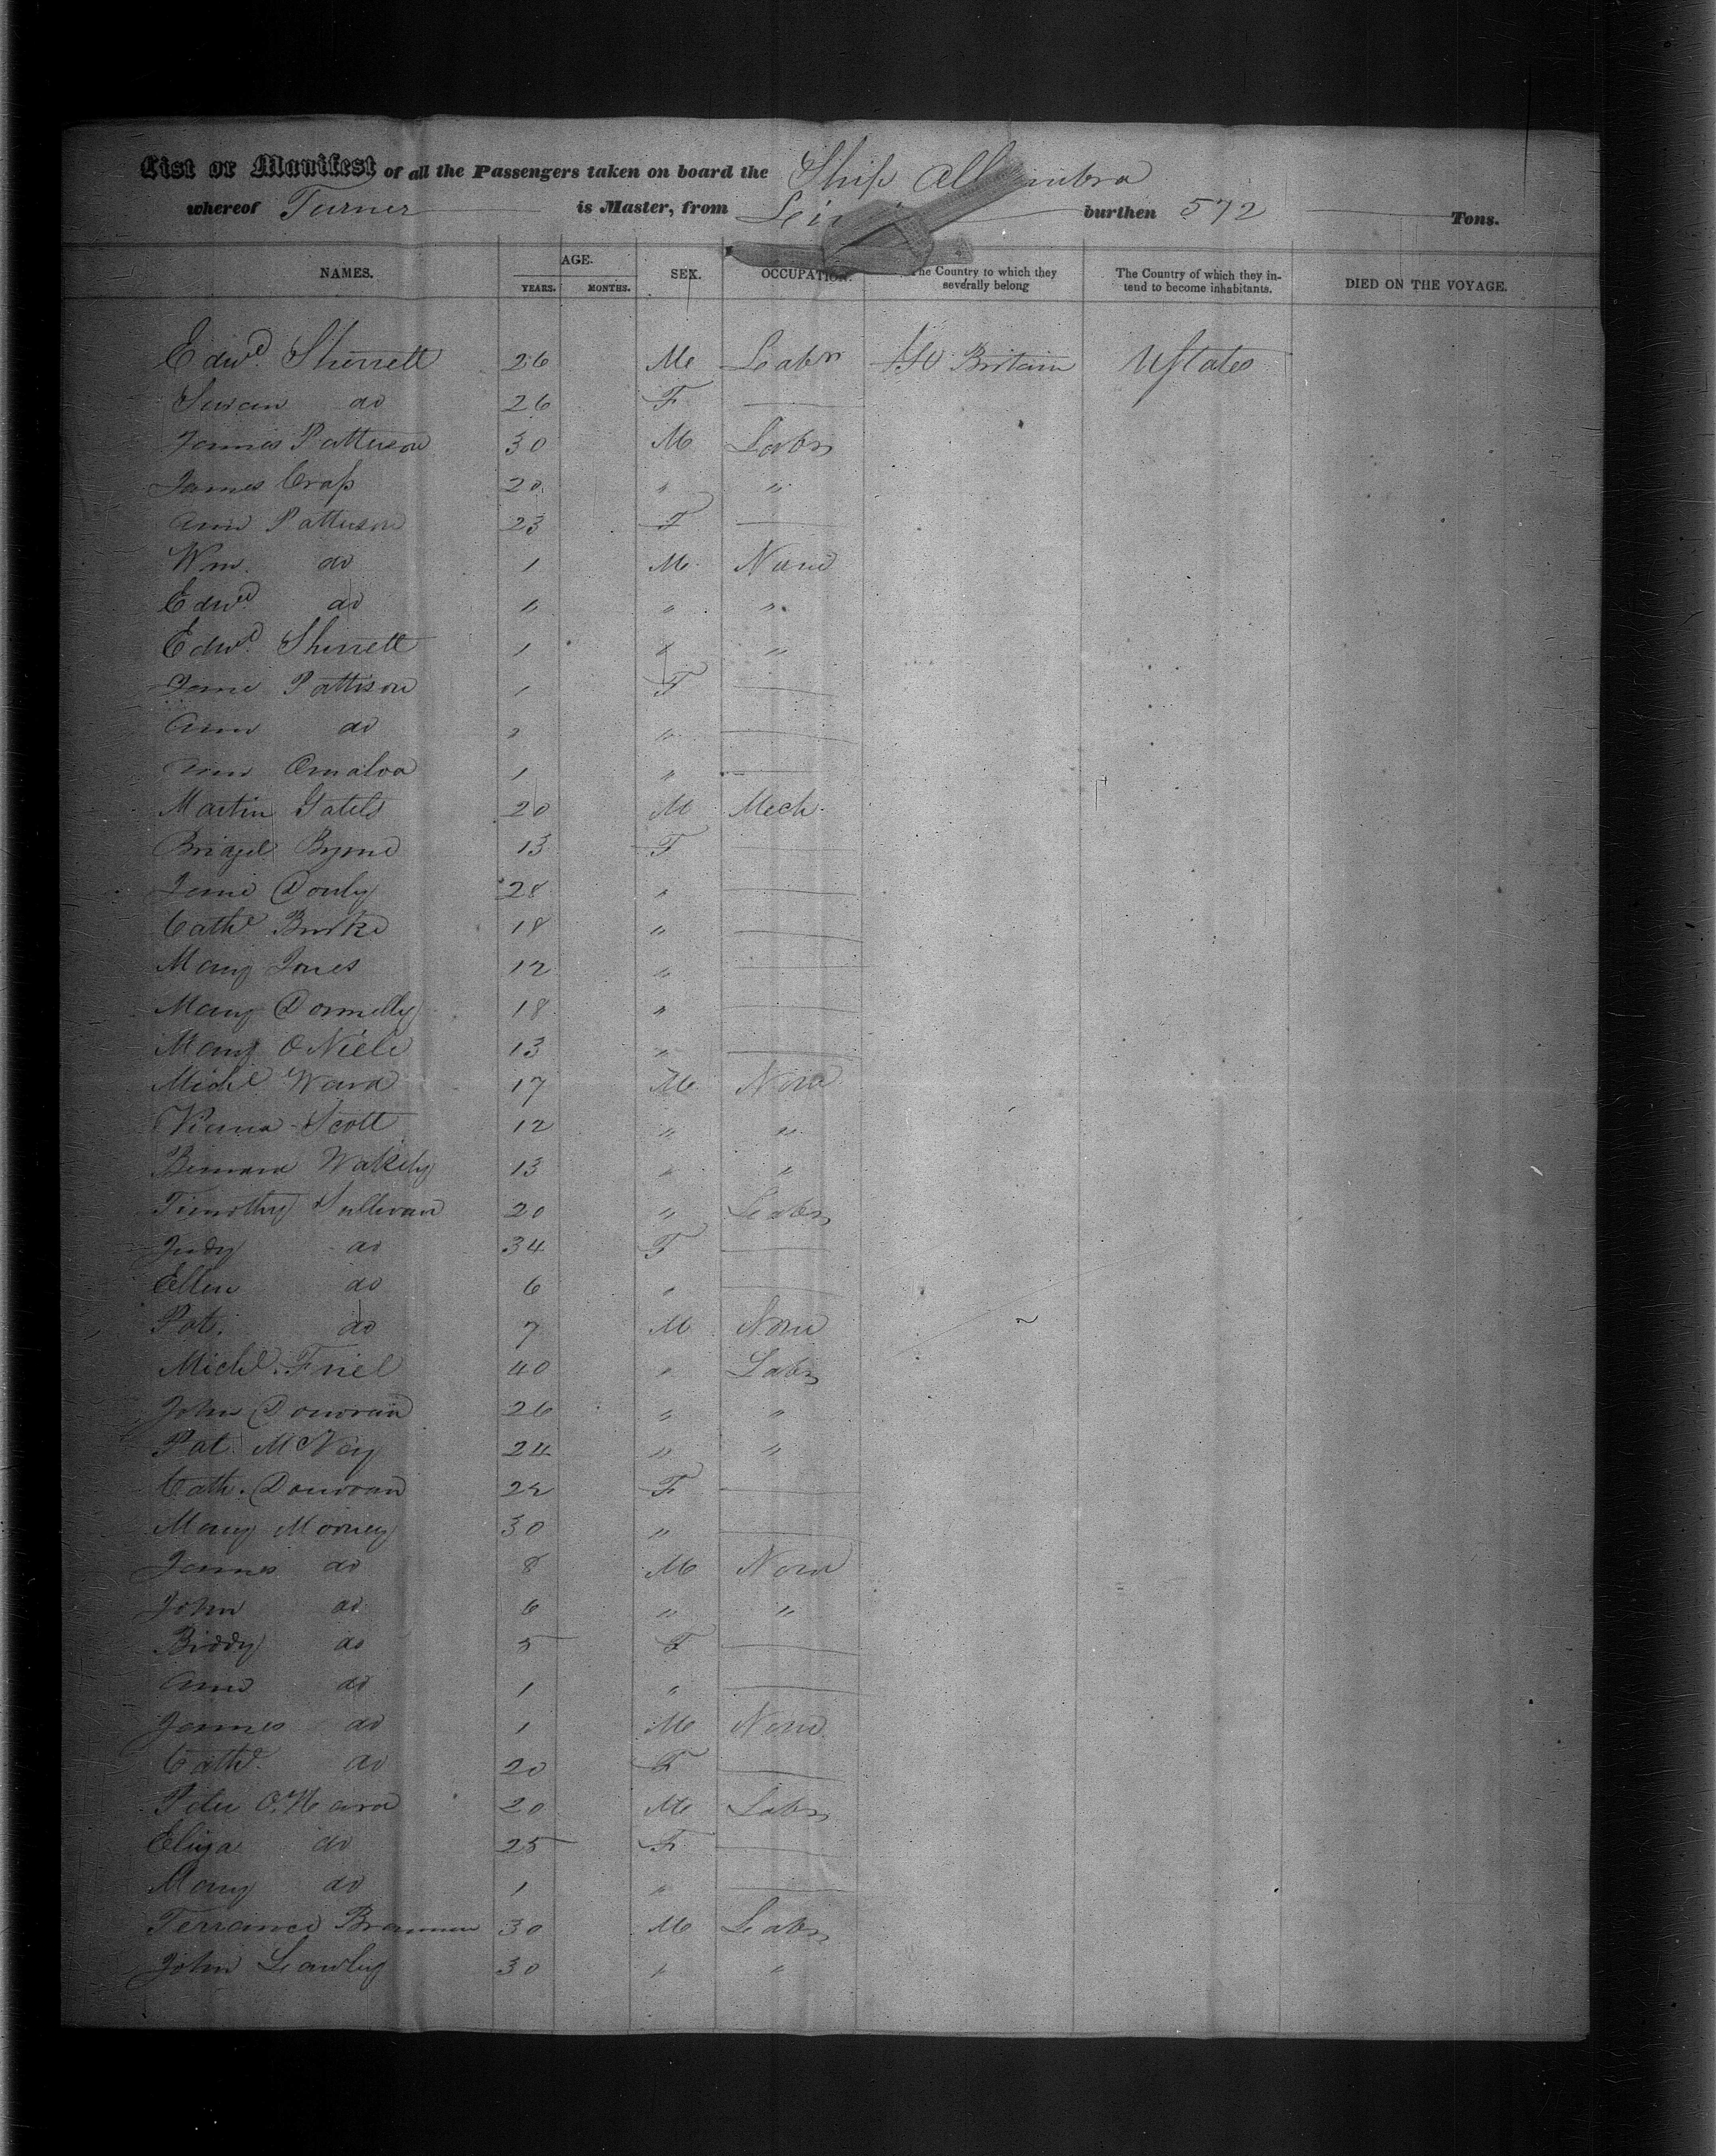 List or Manifest of all the Passengers taken on board the Ship
whereof Turner is Master, from burthen 572 Tons.
NAMES. AGE. YEARS. MONTHS. SEX. OCCUPATION. The Country to which they severally belong The Country of which they intend to become inhabitants. DIED ON THE VOYAGE.
Edwd. Sherrett 26 M Labr Britain UStates
Susan do 26 F
James Patterson 30 M Labr
James 20 " "
Ann Patterson 23 F
Wm. do 1 M None
Edwd do " " "
Edwd. Sherrett 1 " "
Jane Pattison 1 F
Ann do 2 "
1 "
Martin 20 M Mech.
Bridget Byrne 13 F
Jane 28 "
Cathe Burke 18 "
Mary Jones 12 "
Mary Donnelly 18 "
Mary O Niele 13 "
Michl Ward 17 M None
Scott 12 " "
Bernard Wakely 13 " "
Timothy Sullivan 20 " Labr
Judy do 34 F
Ellen do 6 "
Pat. do 7 M None
Michl. Friel 40 " Labr
John Donovan 26 " "
Pat McVey 24 " "
Cath. Donovan 22 F
Mary 30 "
James do 8 M None
John do 6 " "
Biddy do 5 F
Ann do 1 "
James do 1 M None
Cathe. do 20 F
Peter O.Hara 20 M Labr
Eliza do 25 F
Mary do 1 "
Terrance Brannen 30 M Labr
John 30 " "